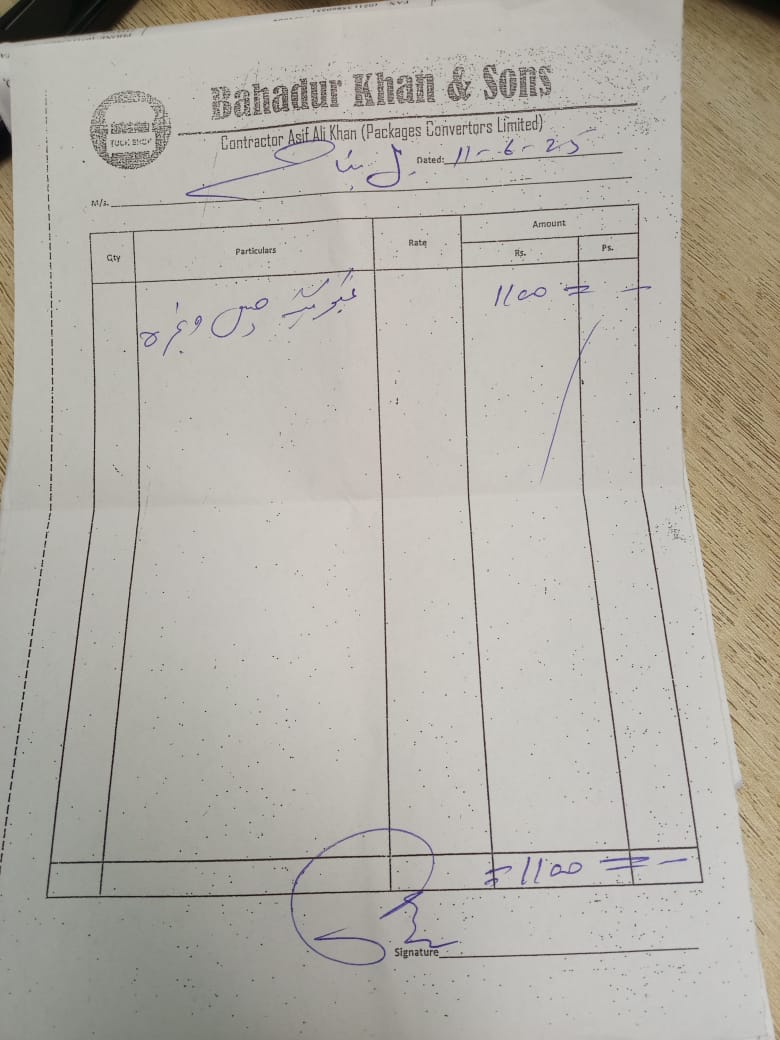 Bahadur Khan & Sons
TUCK SHOP
Contractor Asif Ali Khan (Packages Convertors Limited)
Dated: 11-6-25
M/s.
Qty Particulars Rate Amount
Rs. Ps.
وغیرہ 1100 = -
= 1100 = -
Signature